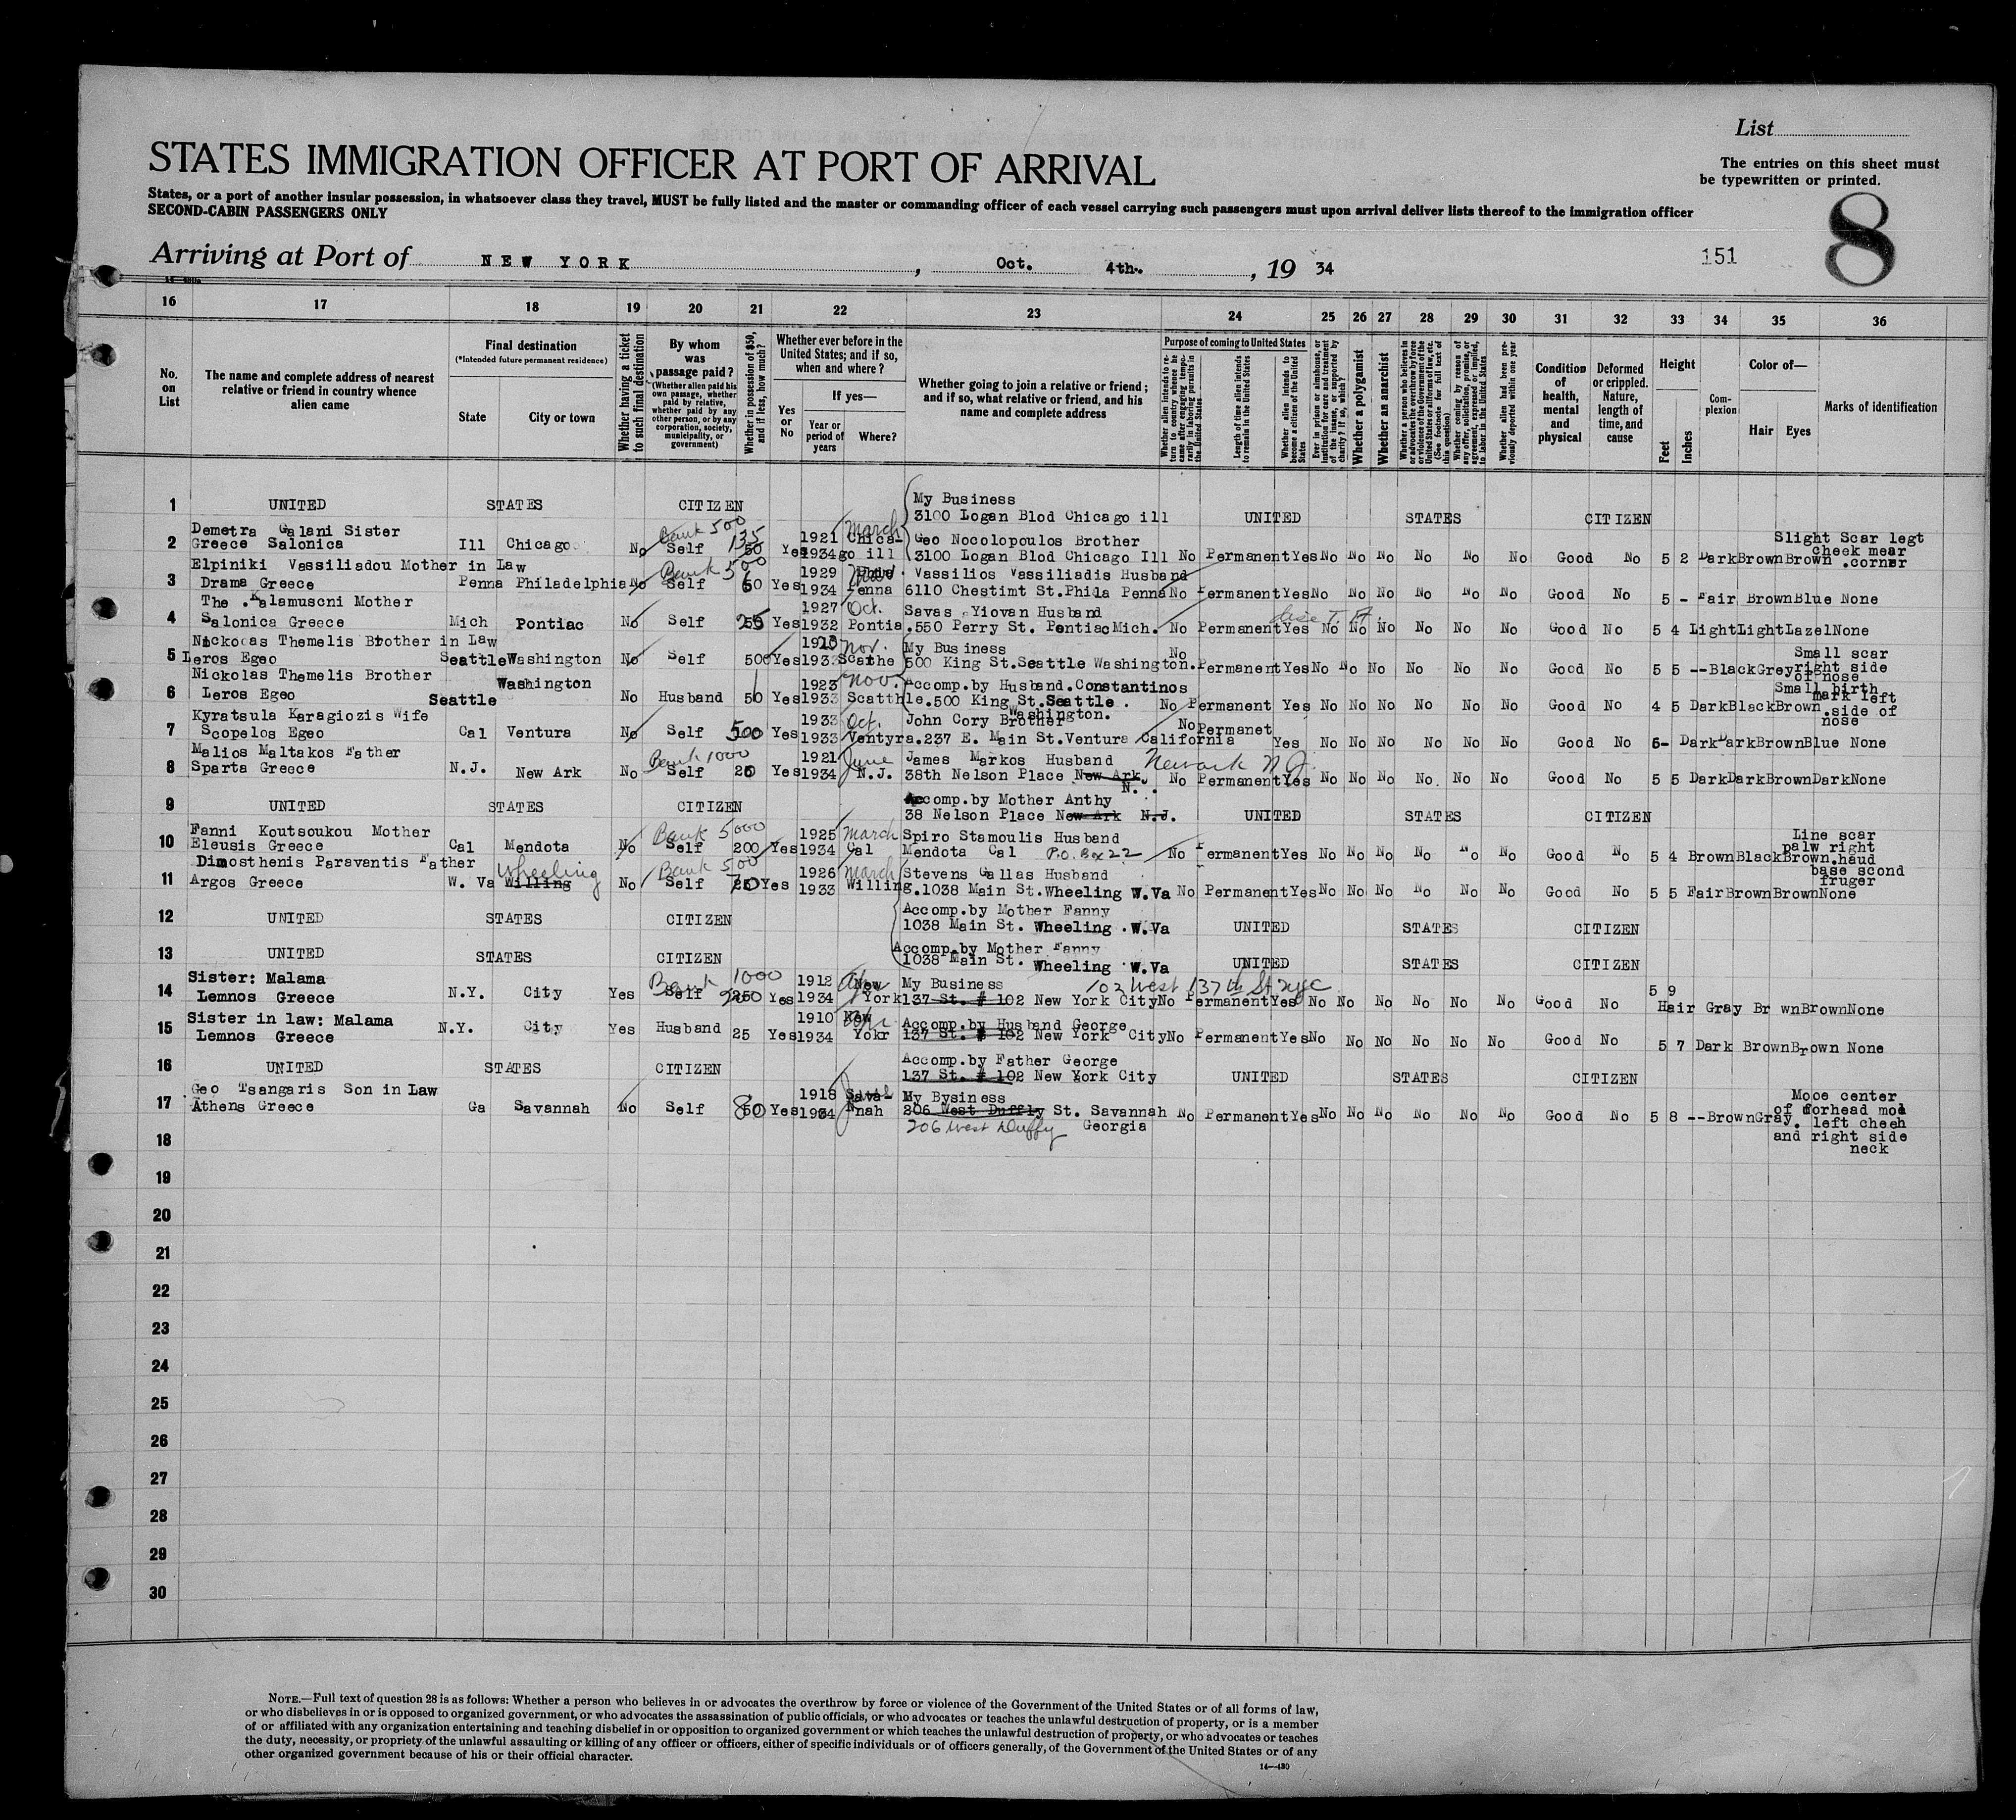 List
STATES IMMIGRATION OFFICER AT PORT OF ARRIVAL
The entries on this sheet must
be typewritten or printed.
States, or a port of another insular possession, in whatsoever class they travel, MUST be fully listed and the master or commanding officer of each vessel carrying such passengers must upon arrival deliver lists thereof to the immigration officer
SECOND-CABIN PASSENGERS ONLY
8
Arriving at Port of NEW YORK, Oct. 4th., 19 34
151
16 17 18 19 20 21 22 23 24 25 26 27 28 29 30 31 32 33 34 35 36
No. on List
The name and complete address of nearest relative or friend in country whence alien came
Final destination
(*Intended future permanent residence)
State
City or town
Whether having a ticket to such final destination
By whom was passage paid?
(Whether alien paid his own passage, whether paid by relative, whether paid by any other person, or by any corporation, society, municipality, or government)
Whether in possession of $50, and if less, how much?
Whether ever before in the United States; and if so, when and where?
Yes or No
If yes—
Year or period of years
Where?
Whether going to join a relative or friend; and if so, what relative or friend, and his name and complete address
Purpose of coming to United States
Whether alien intends to return to country whence he came after engaging temporarily in laboring pursuits in the United States
Length of time alien intends to remain in the United States
Whether alien intends to become a citizen of the United States
Ever in prison or almshouse, or institution for care and treatment of the insane, or supported by charity? If so, which?
Whether a polygamist
Whether an anarchist
Whether a person who believes in or advocates the overthrow by force or violence of the Government of the United States or all forms of law, etc. (See footnote for full text of this question)
Whether coming by reason of any offer, solicitation, promise, or agreement, expressed or implied, to labor in the United States
Whether alien had been previously deported within one year
Condition of health, mental and physical
Deformed or crippled. Nature, length of time, and cause
Height
Feet
Inches
Complexion
Color of—
Hair
Eyes
Marks of identification
1 UNITED STATES CITIZEN My Business
3100 Logan Blod Chicago ill UNITED STATES CITIZEN
2 Demetra Galani Sister
Greece Salonica Ill Chicago No Bank 500 Self 135 50 Yes 1921 1934 March Chica-go ill Geo Nocolopoulos Brother
3100 Logan Blod Chicago Ill No Permanent Yes No No No No No No Good No 5 2 Dark Brown Brown Slight Scar legt
cheek mear
.corner
3 Elpiniki Vassiliadou Mother in Law
Drama Greece Penna Philadelphia No Bank 500 Self 50 Yes 1929 1934 Penna Vassilios Vassiliadis Husband
6110 Chestimt St.Phila Penna No Permanent Yes No No No No No No Good No 5 - Fair Brown Blue None
4 The .Kalamuscni Mother
Salonica Greece Mich Pontiac No Self 25 Yes 1927 1932 Oct. Pontia. Savas Yiovan Husband
550 Perry St. Pontiac Mich. No Permanent Yes No No No No No No Good No 5 4 Light Light Lazel None
5 Nickocas Themelis Brother in Law
Leros Egeo Seattle Washington No Self 500 Yes 1923 1933 Nov. Scathe My Business
500 King St.Seattle Washington. No Permanent Yes No No No No No No Good No 5 5 -- Black Grey Small scar
right side
of nose
6 Nickolas Themelis Brother
Leros Egeo Seattle Washington No Husband 50 Yes 1923 1933 Nov. Scatthle. Accomp.by Husband.Constantinos
500 King St.Seattle .
Washington. No Permanent Yes No No No No No No Good No 4 5 Dark Black Brown Small birth
mark left
.side of
nose
7 Kyratsula Karagiozis Wife
Scopelos Egeo Cal Ventura No Self 500 Yes 1933 1933 Oct. Ventyra. John Cory Brother
237 E. Main St.Ventura California No Permanet Yes No No No No No No Good No 5- Dark Dark Brown Blue None
8 Malios Maltakos Father
Sparta Greece N.J. New Ark No Bank 1000 Self 20 Yes 1921 1934 June N.J. James Markos Husband
38th Nelson Place New Ark. N. . Newark N J. No Permanent Yes No No No No. No No Good No 5 5 Dark Dark Brown Dark None
9 UNITED STATES CITIZEN Accomp.by Mother Anthy
38 Nelson Place New Ark N.J. UNITED STATES CITIZEN
10 Fanni Koutsoukou Mother
Eleusis Greece Cal Mendota No Bank 5000 Self 200 Yes 1925 1934 March Cal Spiro Stamoulis Husband
Mendota Cal P.O. Box 22 No Permanent Yes No No No No No No Good No 5 4 Brown Black Brown Line scar
palw right
.haud
base scond
fruger
11 Dimosthenis Paravantis Father
Argos Greece W. Va Willing Wheeling No Bank 500 Self Yes 1926 1933 March Willing. Stevens Gallas Husband
1038 Main St.Wheeling W.Va No Permanent Yes No No No No No No Good No 5 5 Fair Brown Brown None
12 UNITED STATES CITIZEN Accomp.by Mother Fanny
1038 Main St. Wheeling .W.Va UNITED STATES CITIZEN
13 UNITED STATES CITIZEN Accomp.by Mother Fanny
1038 Main St. Wheeling W.Va UNITED STATES CITIZEN
14 Sister: Malama
Lemnos Greece N.Y. City Yes Bank 1000 Self Yes 1912 1934 New York My Business 102 West 137th St nyc
137 St. # 102 New York City No Permanent Yes No No No No No No Good No 5 9 Hair Gray Br wn Brown None
15 Sister in law: Malama
Lemnos Greece N.Y. City Yes Husband 25 Yes 1910 1934 New Yokr Accomp.by Husband George
137 St. # 102 New York City No Permanent Yes No No No No No No Good No 5 7 Dark Brown Brown None
16 UNITED STATES CITIZEN Accomp.by Father George
137 St. # 102 New York City UNITED STATES CITIZEN
17 Geo Tsangaris Son in Law
Athens Greece Ga Savannah No Self 80 Yes 1918 1934 Sava-nnah My Bysiness
206 West Duffly St. Savannah
206 West Duffy Georgia No Permanent Yes No No No No No No Good No 5 8 -- Brown Gray. Mooe center
of forhead moa
left cheeh
and right side
neck
18
19
20
21
22
23
24
25
26
27
28
29
30
NOTE.—Full text of question 28 is as follows: Whether a person who believes in or advocates the overthrow by force or violence of the Government of the United States or of all forms of law,
or who disbelieves in or is opposed to organized government, or who advocates the assassination of public officials, or who advocates or teaches the unlawful destruction of property, or is a member
of or affiliated with any organization entertaining and teaching disbelief in or opposition to organized government or which teaches the unlawful destruction of property, or who advocates or teaches
the duty, necessity, or propriety of the unlawful assaulting or killing of any officer or officers, either of specific individuals or of officers generally, of the Government of the United States or of any
other organized government because of his or their official character.
14—430